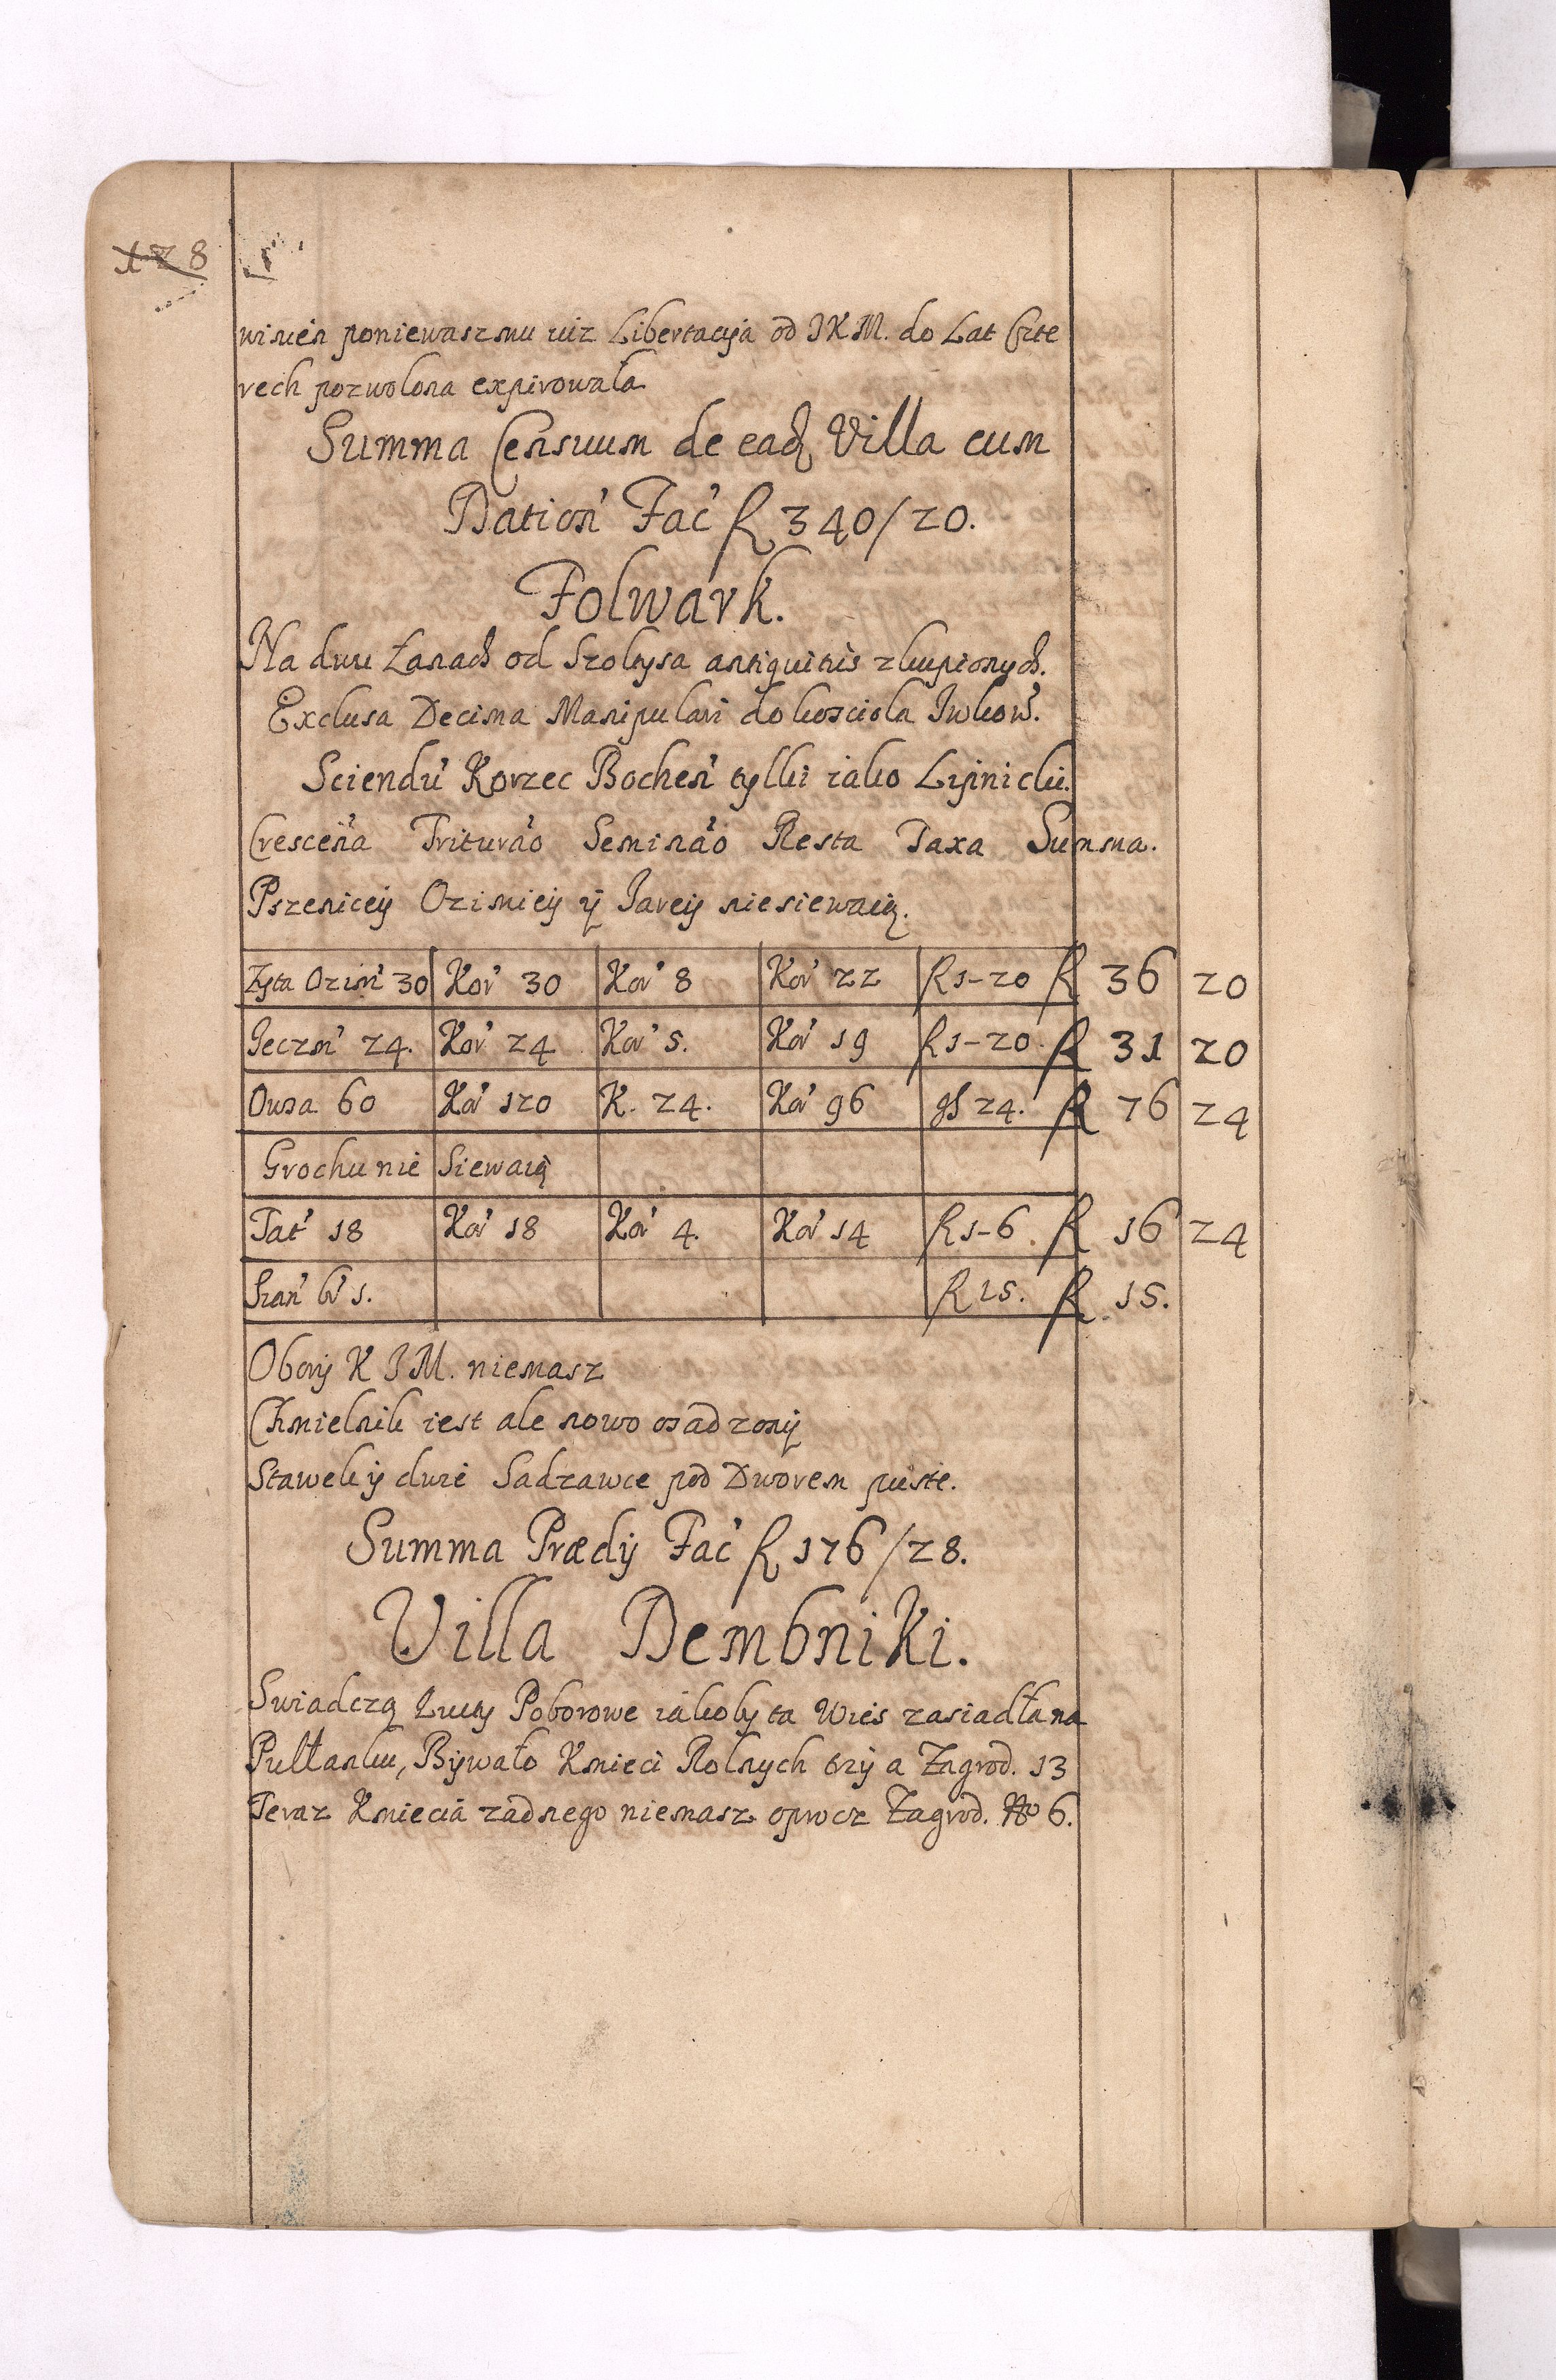 128
winien poniewasz mu iuz Libertacyja od JKM. do Lat Czte
rech pozwolona expirowala
Summa Censuum de eadq Villa cum
Dation' Fac' fl 340/20.
Folwark.
Na dwu Łanach od Szoltysa antiquitus zkupionych.
Exclusa Decima Manipulari do kosciola Iwkow'.
Sciendu' Korzec Bochen' tylki iako Lipnicki.
Crescen'a Tritura'o Semina'o Resta Taxa Summa.
Pszenicey Ozimiey y Jarey niesiewaią.
Zyta Ozim' 30 Kor' 30 Kor' 8 Kor' 22 fl 1-20 fl 36 20
Jeczm' 24. Kor' 24 Kor' 5. Kor' 19 fl 1-20. fl 31 20
Owsa 60 Kor' 120 K. 24. Kor' 96 gs 24. fl 76 24
Grochu nie Siewaią
Tat' 18 Kor' 18 Kor' 4. Kor' 14 fl 1-6. fl 16 24
Sian' br' 1. fl 15. fl 15.
Obory K J M. niemasz
Chmielnik iest ale nowo osadzony
Stawek y dwie Sadzawce pod Dworem puste.
Summa Prædij Fac' fl 176/28.
Villa Dembniki.
Swiadczą kwity Poborowe iakoby ta Wies zasiadła na
Pułłanku, Bywało Kmieci Rolnych trzy a Zagrod. 13
Teraz Kmiecia zadnego niemasz oprocz Zagrod. No 6.